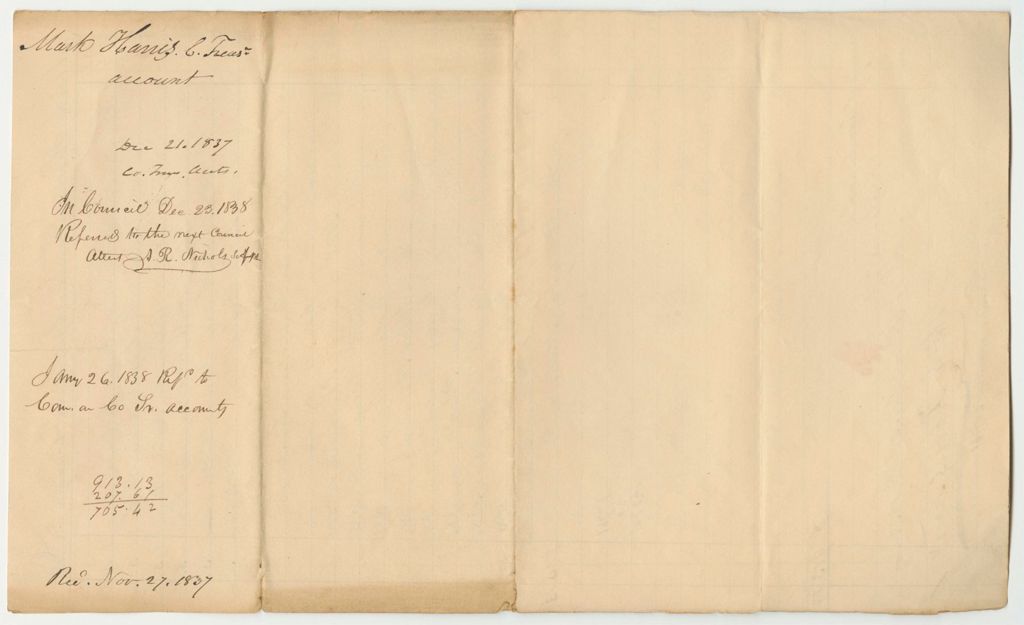 Mark Harris. C. Treasr
account
Dec 21. 1837
Co. Treas. Accts.
In Council Dec 23. 1838
Referred to the next Council
Attest A. R. Nichols
Jany 26. 1838 Refd to
Com. on Co Tr. accounts
913.13
207.61
705.42
Recd. Nov. 27. 1837